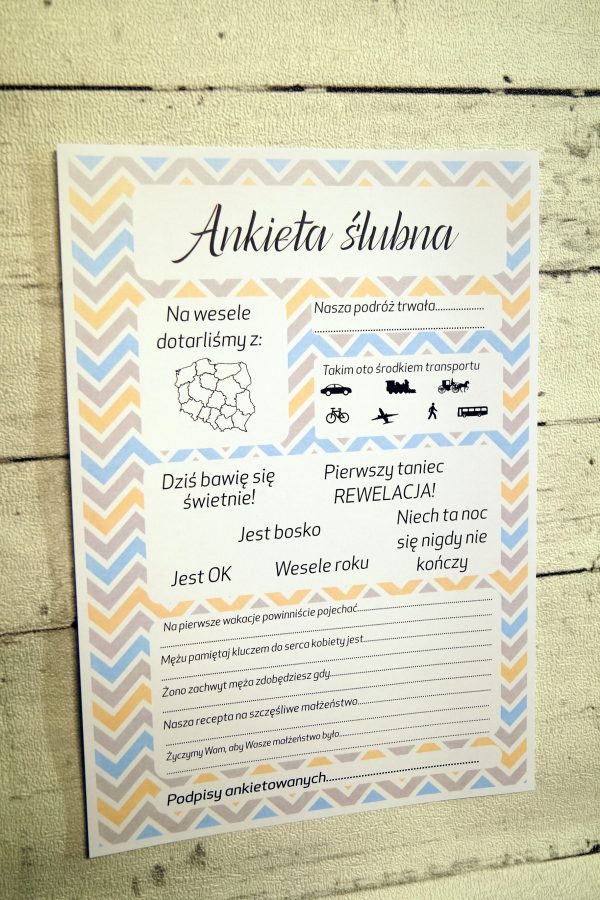 Ankieta ślubna
Na wesele
dotarliśmy z:
Nasza podróż trwała.................
Takim oto środkiem transportu
Dziś bawię się
świetnie!
Pierwszy taniec
REWELACJA!
Jest bosko
Niech ta noc
się nigdy nie
kończy
Jest OK
Wesele roku
Na pierwsze wakacje powinniście pojechać..................
Mężu pamiętaj kluczem do serca kobiety jest..................
Żono zachwyt męża zdobędziesz gdy..................
Nasza recepta na szczęśliwe małżeństwo..................
Życzymy Wam, aby Wasze małżeństwo było..................
Podpisy ankietowanych..................